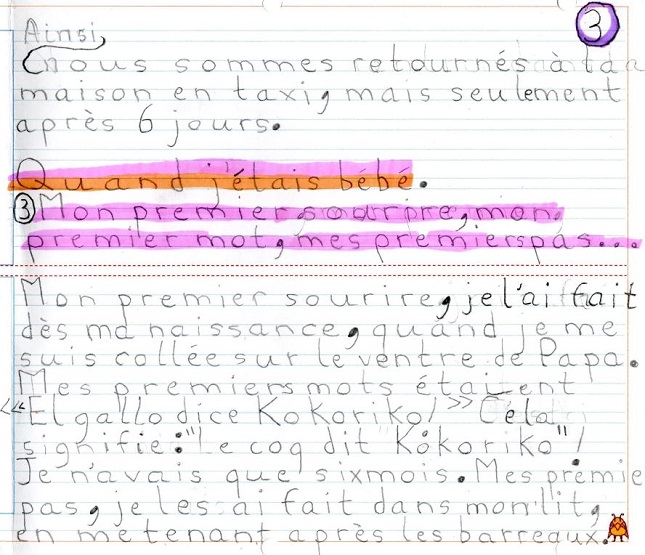 3
Ainsi,
nous sommes retournés à la
maison en taxi, mais seulement
après 6 jours.
Quand j'étais bébé.
③ Mon premier sourire, mon
premier mot, mes premiers pas...
Mon premier sourire, je l'ai fait
dès ma naissance, quand je me
suis collée sur le ventre de Papa.
Mes premiers mots étaient
«El gallo dice Kokoriko!» Cela
signifie: "Le coq dit Kokoriko"!
Je n'avais que six mois. Mes premie
pas, je les ai fait dans mon lit,
en me tenant après les barreaux.